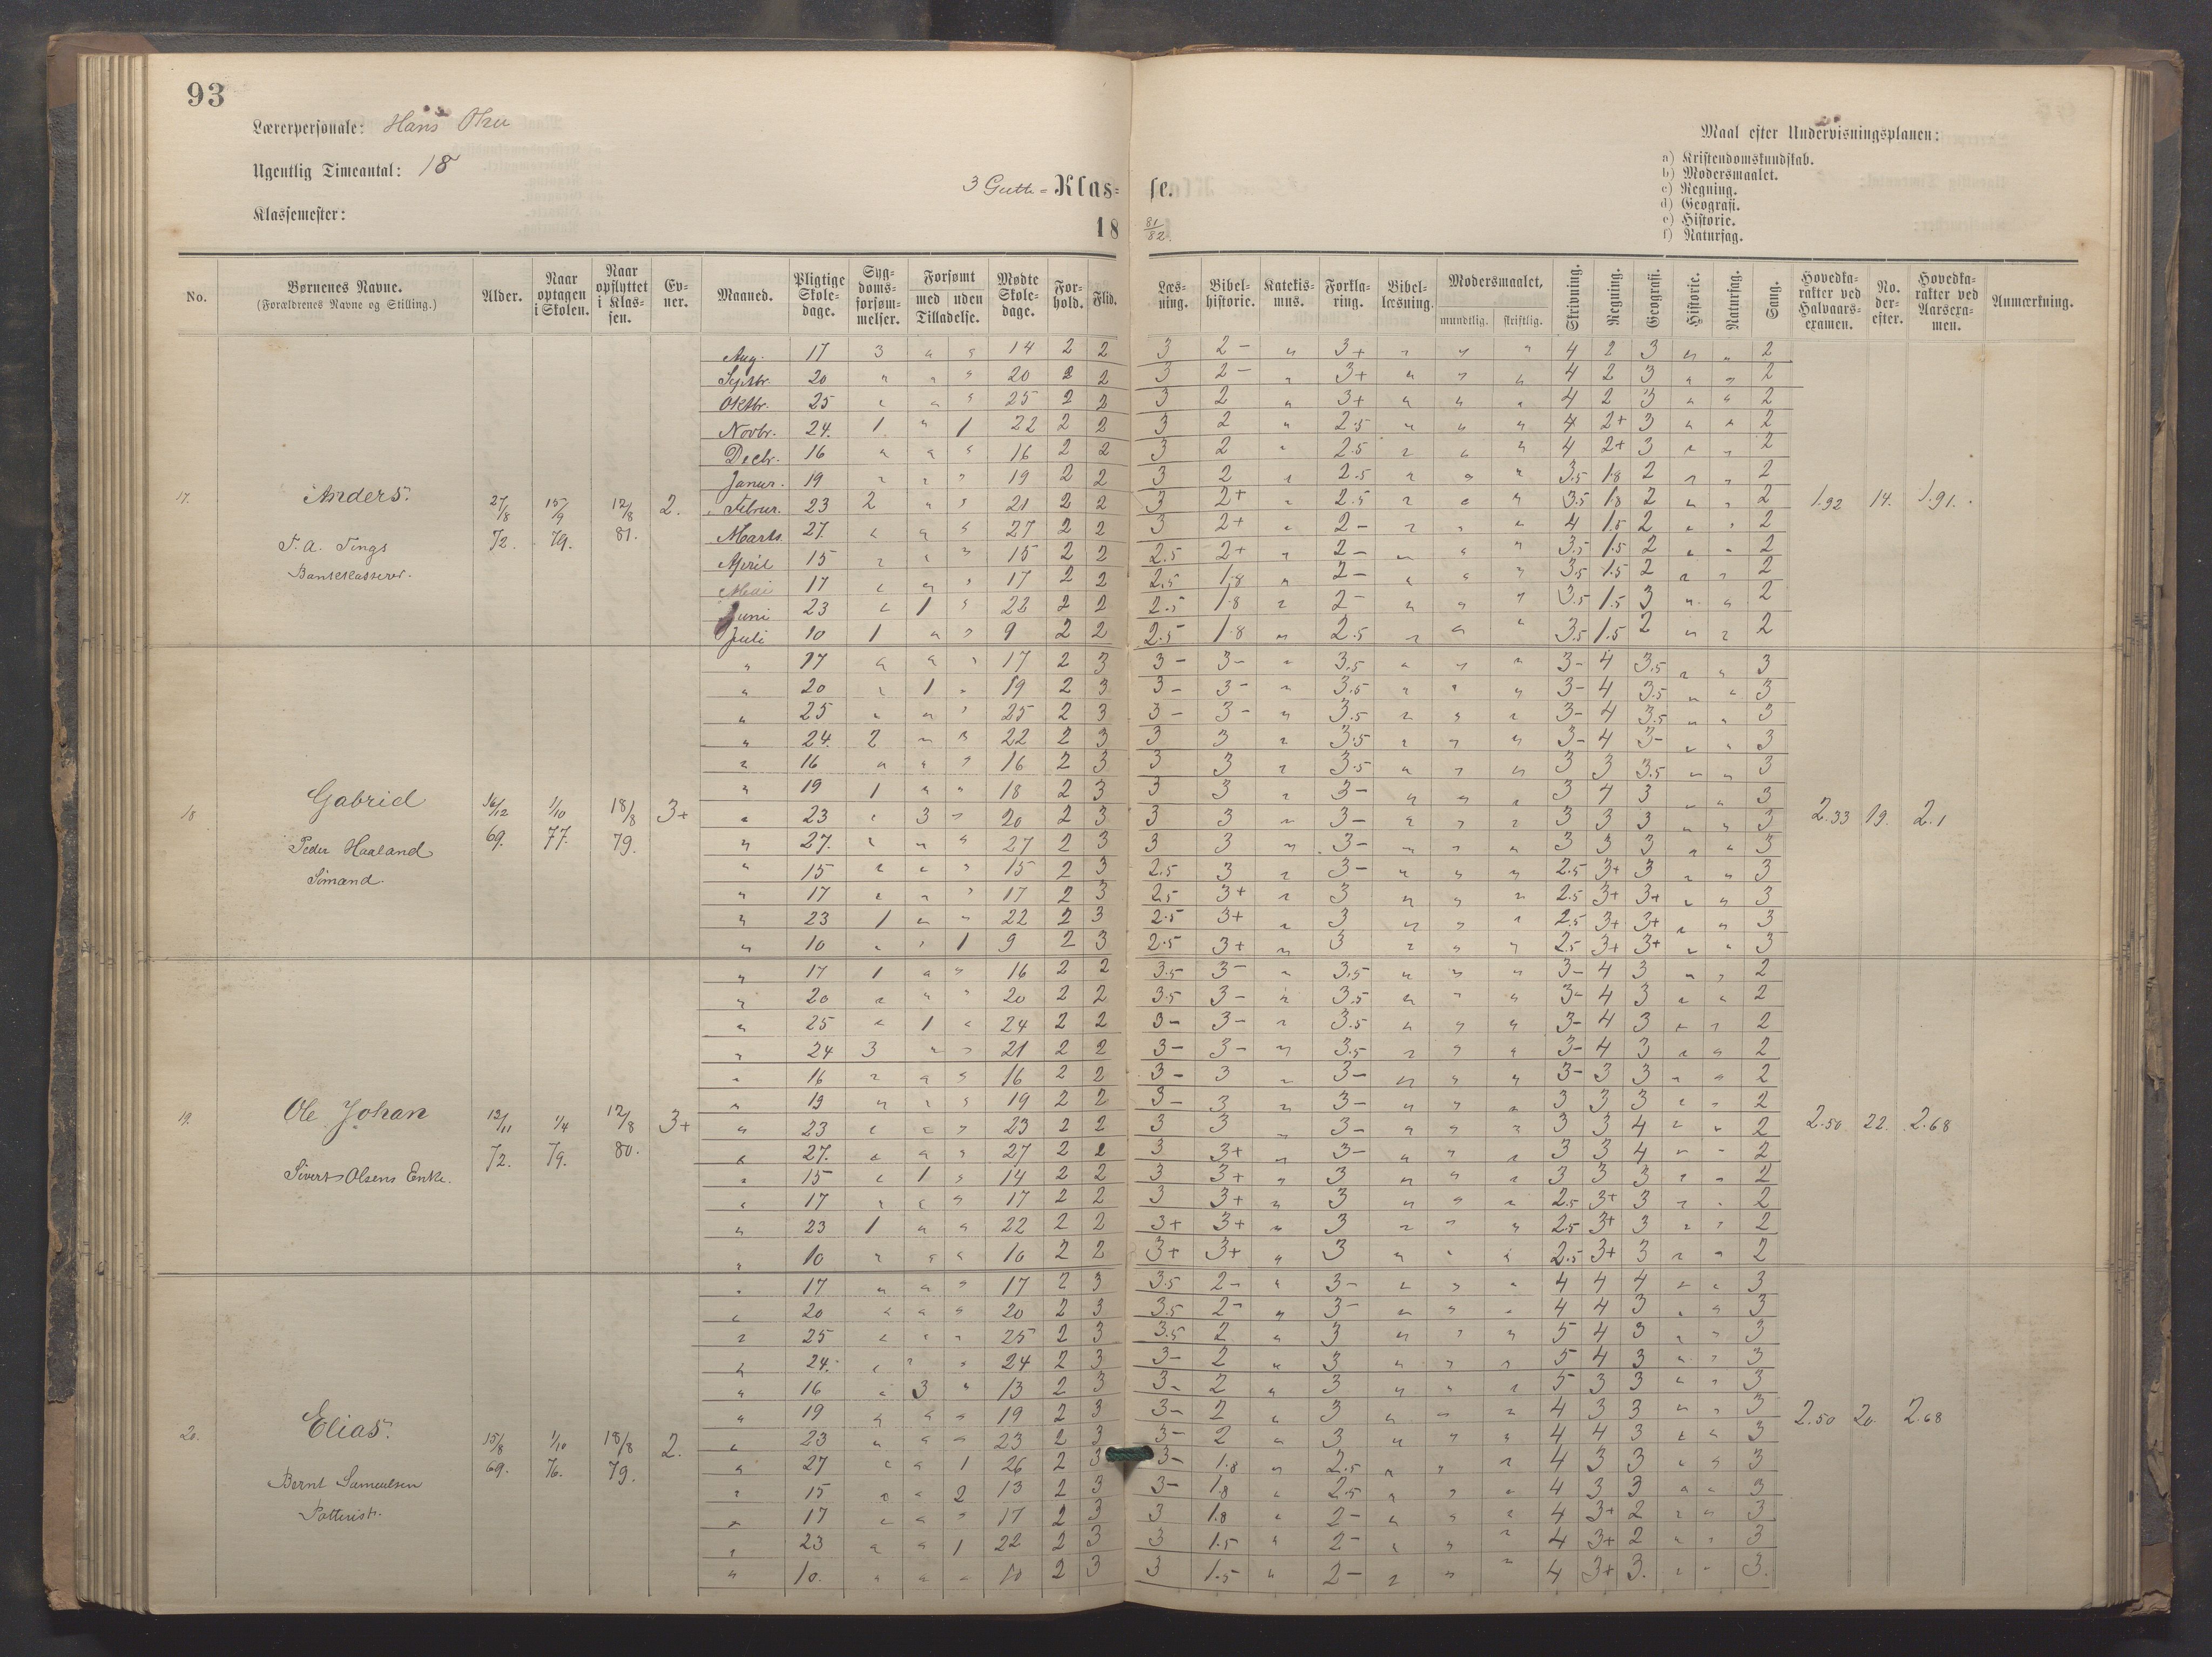 93
Lærerpersonale: Hans
Ugentlig Timeantal: 18
Klassemester:
3 Gutte= Klasse.
18 81/82.
Maal efter Undervisningsplanen:
a) Kristendomskundskab.
b) Modersmaalet.
c) Regning.
d) Geografi.
e) Historie.
f) Naturfag.
No. Børnenes Navne. (Forældrenes Navne og Stilling.) Alder. Naar optagen i Skolen. Naar opflyttet i Klassen. Evner. Maaned. Pligtige Skoledage. Sygdomsforsømmelser. Forsømt med uden Tilladelse. Mødte Skoledage. Forhold. Flid. Læsning. Bibelhistorie. Katekismus. Forklaring. Bibellæsning. Modersmaalet, mundtlig. skriftlig. Skrivning. Regning. Geografi. Historie. Naturfag. Sang. Hovedkarakter ved Halvaarsexamen. No. derefter. Hovedkarakter ved Aarsexamen. Anmærkning.
17. Anders. 27/8 72. 15/9 79. 12/8 81. 2. 1.92 14. 1.91.
T. A. Tengs
Bankkasserer.
Aug. 17 3 " " 14 2 2 3 2- " 3+ " " " 4 2 3 " " 2
Septbr. 20 " " " 20 2 2 3 2- " 3+ " " " 4 2 3 " " 2
Oktbr. 25 " " " 25 2 2 3 2 " 3+ " " " 4 2 3 " " 2
Novbr. 24. 1 " 1 22 2 2 3 2 " 2.5 " " " 4 2+ 3 " " 2
Decbr. 16 " " " 16 2 2 3 2 " 2.5 " " " 4 2+ 3 " " 2
Janur. 19 " " " 19 2 2 3 2 " 2.5 " " " 3.5 1.8 2 " " 2
Februr. 23 2 " " 21 2 2 3 2+ " 2.5 " " " 3.5 1.8 2 " " 2
Marts. 27. " " " 27 2 2 3 2+ " 2- " " " 4 1.5 2 " " 2
April 15 " " " 15 2 2 2.5 2+ " 2- " " " 3.5 1.5 2 " " 2
Mai 17 " " " 17 2 2 2.5 1.8 " 2- " " " 3.5 1.5 2 " " 2
Juni 23 " 1 " 22 2 2 2.5 1.8 " 2- " " " 3.5 1.5 3 " " 2
Juli 10 1 " " 9 2 2 2.5 1.8 " 2.5 " " " 3.5 1.5 2 " " 2
18. Gabriel 16/12 69. 1/10 77. 18/8 79. 3+ 2.33 19. 2.1
Peder Haaland
Sømand.
" 17 " " " 17 2 3 3- 3- " 3.5 " " " 3- 4 3.5 " " 3
" 20 " 1 " 19 2 3 3- 3- " 3.5 " " " 3- 4 3.5 " " 3
" 25 " " " 25 2 3 3- 3- " 3.5 " " " 3- 4 3.5 " " 3
" 24. 2 " " 22 2 3 3 3 " 3.5 " " " 3- 4 3- " " 3
" 16 " " " 16 2 3 3 3 " 3.5 " " " 3 3 3.5 " " 3
" 19 1 " " 18 2 3 3 3 " 3- " " " 3 4 3 " " 3
" 23 " 3 " 20 2 3 3 3 " 3- " " " 3 3 3 " " 3
" 27. " " " 27 2 3 3 3 " 3- " " " 3 3 3 " " 3
" 15 " " " 15 2 3 2.5 3 " 3- " " " 2.5 3+ 3 " " 3
" 17 " " " 17 2 3 2.5 3+ " 3 " " " 2.5 3+ 3+ " " 3
" 23 1 " " 22 2 3 2.5 3+ " 3 " " " 2.5 3+ 3+ " " 3
" 10 " " 1 9 2 3 2.5 3+ " 3 " " " 2.5 3+ 3+ " " 3
19. Ole Johan 12/11 72. 1/4 79. 12/8 80. 3+ 2.50 22. 2.68
Sivert Olsens Enke.
" 17 1 " " 16 2 2 3.5 3- " 3.5 " " " 3- 4 3 " " 2
" 20 " " " 20 2 2 3.5 3- " 3.5 " " " 3- 4 3 " " 2
" 25 " 1 " 24 2 2 3- 3- " 3.5 " " " 3- 4 3 " " 2
" 24 3 " " 21 2 2 3- 3- " 3.5 " " " 3- 4 3 " " 2
" 16 " " " 16 2 2 3- 3 " 3- " " " 3- 3 3 " " 2
" 19 " " " 19 2 2 3- 3 " 3- " " " 3 3 3 " " 2
" 23 " " " 23 2 2 3 3 " 3- " " " 3 3 4 " " 2
" 27. " " " 27 2 2 3 3+ " 3- " " " 3 3 4 " " 2
" 15 " 1 " 14 2 2 3 3+ " 3 " " " 3 3 3 " " 2
" 17 " " " 17 2 2 3 3+ " 3 " " " 2.5 3+ 3 " " 2
" 23 1 " " 22 2 2 3+ 3+ " 3 " " " 2.5 3+ 3 " " 2
" 10 " " " 10 2 2 3+ 3+ " 3 " " " 2.5 3+ 3 " " 2
20. Elias. 15/8 69. 1/10 76. 18/8 79. 2. 2.50 20. 2.68
Bernt Samuelsen
" 17 " " " 17 2 3 3.5 2- " 3- " " " 4 4 4 " " 3
" 20 " " " 20 2 3 3.5 2- " 3- " " " 4 4 3 " " 3
" 25 " " " 25 2 3 3.5 2 " 3 " " " 5 4 3 " " 3
" 24. " " " 24 2 3 3- 2 " 3 " " " 5 4 3 " " 3
" 16 " 3 " 13 2 3 3- 2 " 3 " " " 5 3 3 " " 3
" 19 " " " 19 2 3 3- 2 " 3 " " " 4 3 3 " " 3
" 23 " " " 23 2 3 3- 2 " 3 " " " 4 4 3 " " 3
" 27 " " 1 26 2 3 3- 1.8 " 2.5 " " " 4 3 3 " " 3
" 15 " " 2 13 2 3 3- 1.8 " 2.5 " " " 4 3 3 " " 3
" 17 " " " 17 2 3 3 1.8 " 2- " " " 4 3+ 2 " " 3
" 23 " " 1 22 2 3 3 1.5 " 2- " " " 4 3+ 2 " " 3
" 10. " " " 10 2 3 3 1.5 " 2- " " " 4 3+ 3. " " 3.